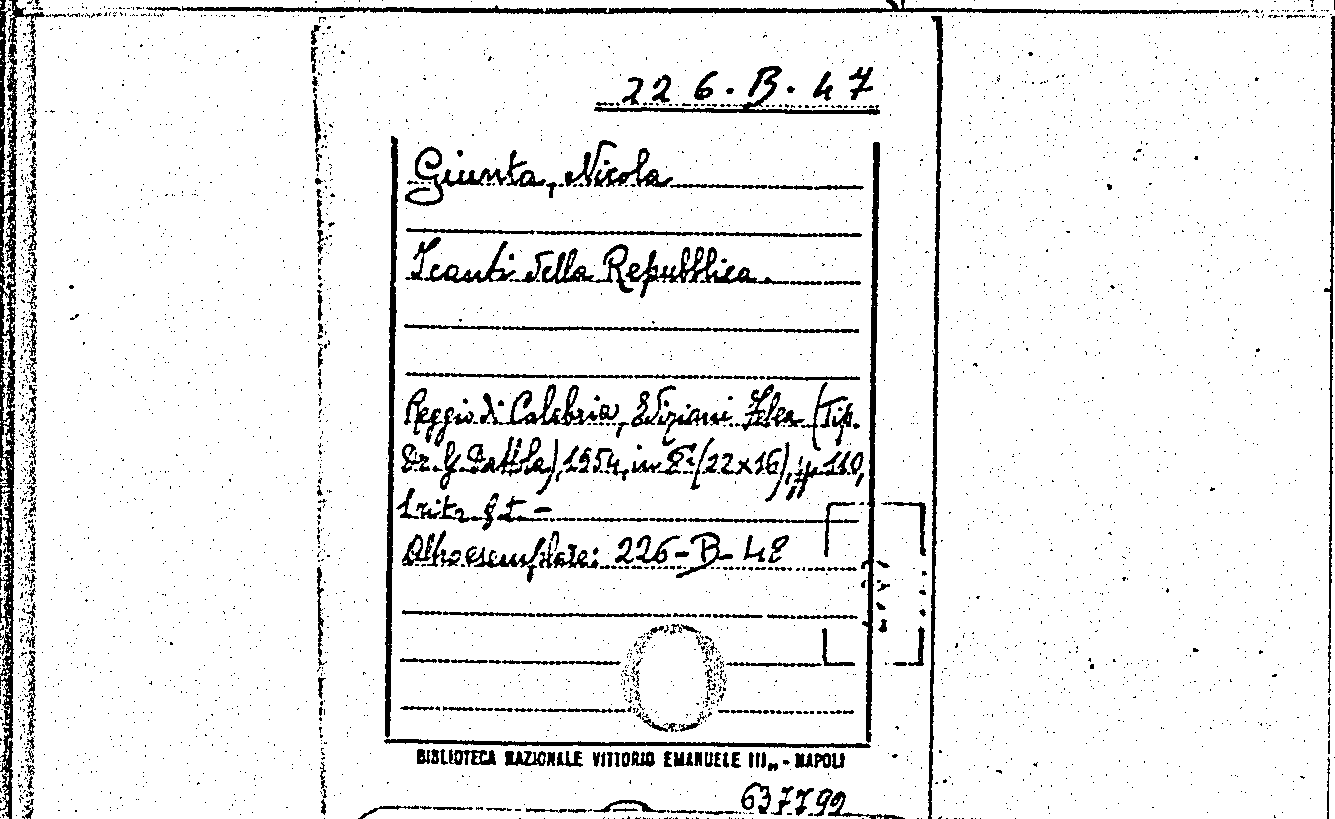 226.B.47
Giunta, Nicola
I canti della Repubblica.
Reggio di Calabria, Edizioni (Tip.
Dr. G. Dattola), 1954, in 8° (22x16), pp. 110,
1 ritr. f. t. -
Altro esemplare: 226-B-48
BIBLIOTECA NAZIONALE VITTORIO EMANUELE III„ - NAPOLI
637792